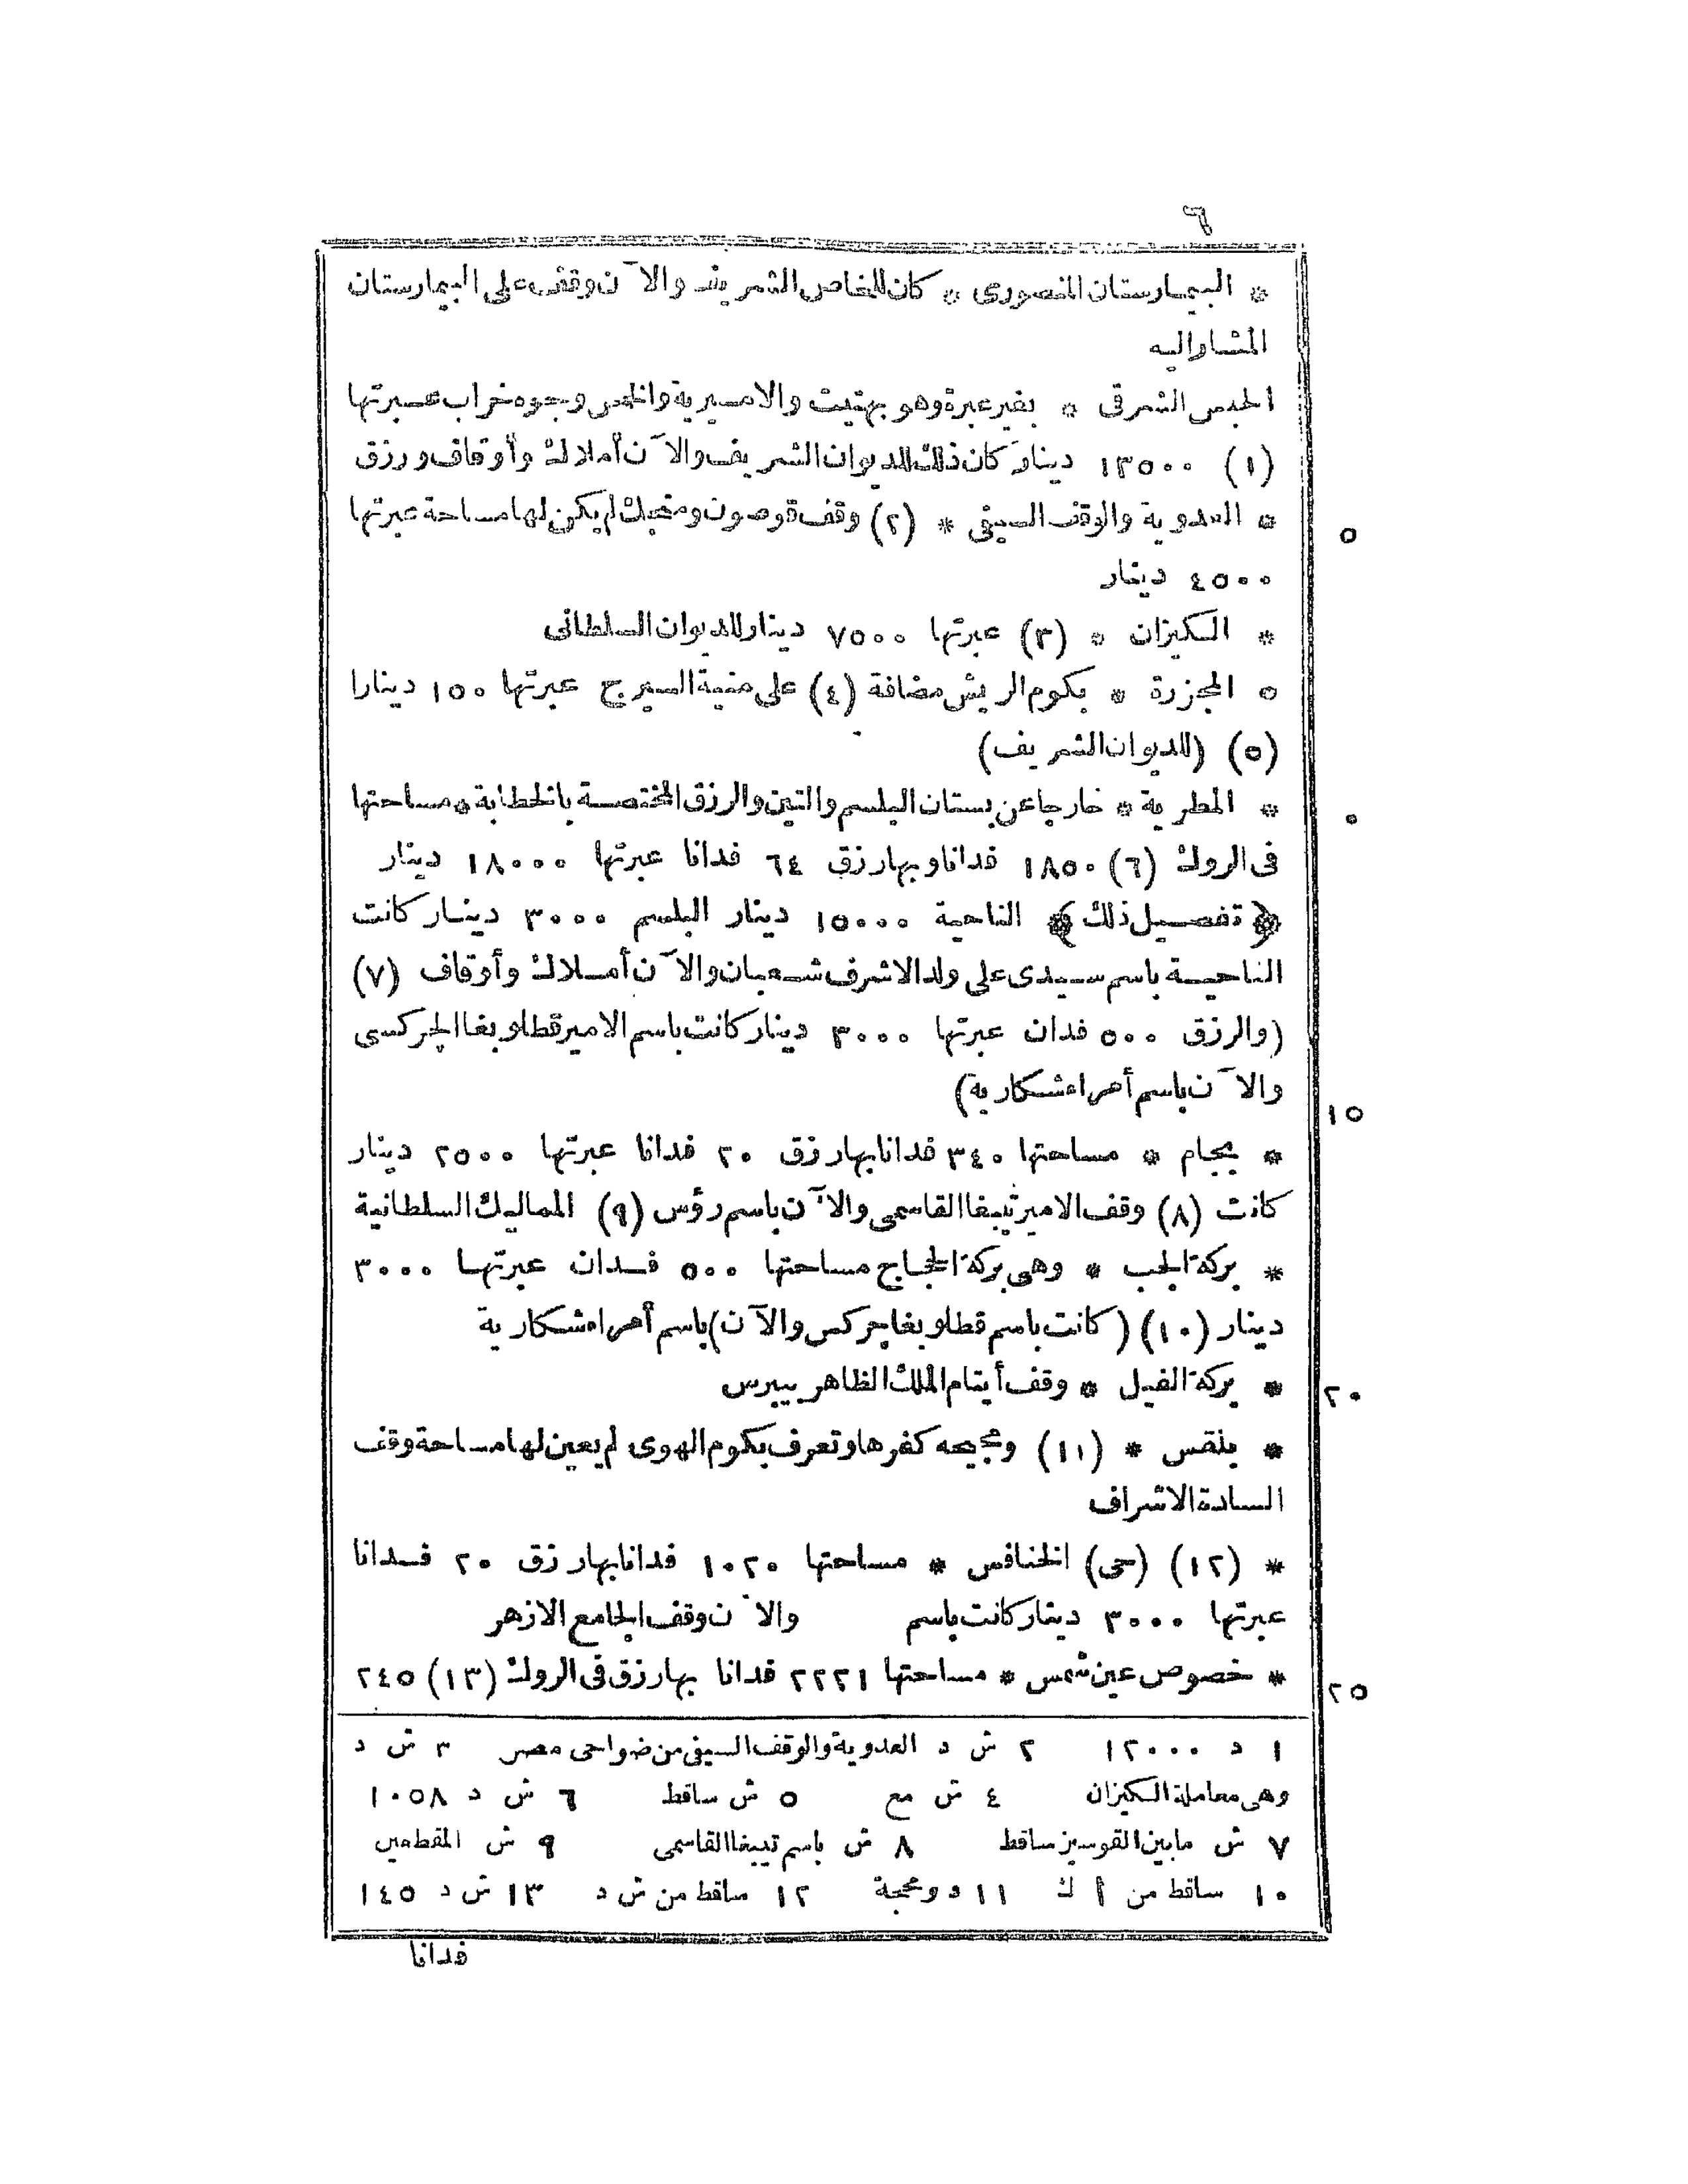 ٦
* البيمارستان المنصورى * كان للخاص الشريف والآن وقف على البيمارستان
المشار اليه
الحبس الشرقى * بغير عبرة وهو بهتيت والاميرية و وجوه خراب عبرتها
(١) ١٣٥٠٠ دينار كان ذلك للديوان الشريف والآن أملاك وأوقاف ورزق
* العدوية والوقف السيفى * (٢) وقف قوصون ومنجك لم يكن لها مساحة عبرتها
٥
٤٥٠٠ دينار
* الكيزان * (٣) عبرتها ٧٥٠٠ دينار للديوان السلطانى
* المجزرة * بكوم الريش مضافة (٤) على منية السيرج عبرتها ١٥٠ دينارا
(٥) (للديوان الشريف)
* المطرية * خارجا عن بستان البلسم والتين والرزق المختصة بالخطابة * مساحتها
٠
فى الروك (٦) ١٨٥٠ فدانا وبها رزق ٦٤ فدانا عبرتها ١٨٠٠٠ دينار
﴿تفصيل ذلك﴾ الناحية ١٥٠٠٠ دينار البلسم ٣٠٠٠ دينار كانت
الناحية باسم سيدى على ولد الاشرف شعبان والآن أملاك وأوقاف (٧)
(والرزق ٥٠٠ فدان عبرتها ٣٠٠٠ دينار كانت باسم الامير قطلوبغا الجركسى
والآن باسم أمراء شكارية)
١٥
* بيجام * مساحتها ٣٤٠ فدانا بها رزق ٢٠ فدانا عبرتها ٢٥٠٠ دينار
كانت (٨) وقف الامير تيبغا القاسمى والآن باسم رؤس (٩) المماليك السلطانية
* بركة الجب * وهى بركة الحجاج مساحتها ٥٠٠ فدان عبرتها ٣٠٠٠
دينار (١٠) (كانت باسم قطلوبغا جركس والآن) باسم أمراء شكارية
* بركة الفيل * وقف أيتام الملك الظاهر بيبرس
٢٠
* بلقس * (١١) كفرها وتعرف بكوم الهوى لم يعين لها مساحة وقف
السادة الاشراف
* (١٢) (حى) الخنافس * مساحتها ١٠٢٠ فدانا بها رزق ٢٠ فدانا
عبرتها ٣٠٠٠ دينار كانت باسم والآن وقف الجامع الازهر
* خصوص عين شمس * مساحتها ٢٢٢١ فدانا بها رزق فى الروك (١٣) ٢٤٥
٢٥
١ د ١٢٠٠٠ ٢ ش د العدوية والوقف السيفى من ضواحى مصر ٣ ش د
وهى معاملة الكيزان ٤ ش مع ٥ ش ساقط ٦ ش د ١٠٥٨
٧ ش مابين القوسين ساقط ٨ ش باسم تيبغا القاسمى ٩ ش المقطعين
١٠ ساقط من أ ك ١١ د ومحجة ١٢ ساقط من ش د ١٣ ش د ١٤٥
فدانا